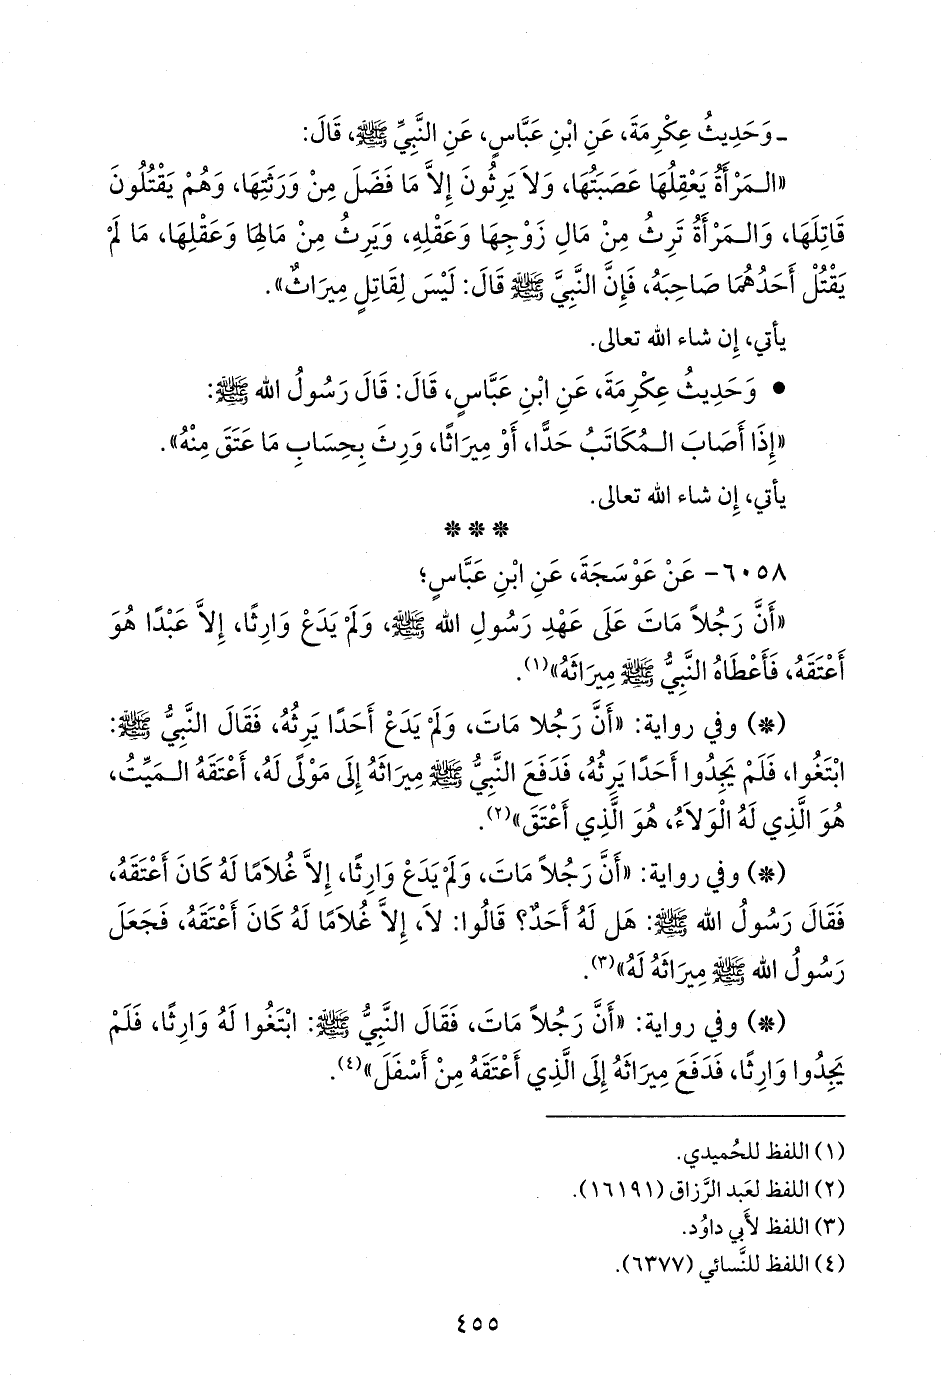 ـ وَحَدِيثُ عِكْرِمَةَ، عَنِ ابْنِ عَبَّاسٍ، عَنِ النَّبِيِّ ﷺ، قَالَ:
«الـمَرْأَةُ يَعْقِلُهَا عَصَبَتُهَا، وَلاَ يَرِثُونَ إِلاَّ مَا فَضَلَ مِنْ وَرَثَتِهَا، وَهُمْ يَقْتُلُونَ
قَاتِلَهَا، وَالـمَرْأَةُ تَرِثُ مِنْ مَالِ زَوْجِهَا وَعَقْلِهِ، وَيَرِثُ مِنْ مَالِهَا وَعَقْلِهَا، مَا لَمْ
يَقْتُلْ أَحَدُهُمَا صَاحِبَهُ، فَإِنَّ النَّبِيَّ ﷺ قَالَ: لَيْسَ لِقَاتِلٍ مِيرَاثٌ».
يأتي، إِن شاء الله تعالى.
• وَحَدِيثُ عِكْرِمَةَ، عَنِ ابْنِ عَبَّاسٍ، قَالَ: قَالَ رَسُولُ الله ﷺ:
«إِذَا أَصَابَ الـمُكَاتَبُ حَدًّا، أَوْ مِيرَاثًا، وَرِثَ بِحِسَابِ مَا عَتَقَ مِنْهُ».
يأتي، إِن شاء الله تعالى.
* * *
٦٠٥٨- عَنْ عَوْسَجَةَ، عَنِ ابْنِ عَبَّاسٍ؛
«أَنَّ رَجُلاً مَاتَ عَلَى عَهْدِ رَسُولِ الله ﷺ، وَلَمْ يَدَعْ وَارِثًا، إِلاَّ عَبْدًا هُوَ
أَعْتَقَهُ، فَأَعْطَاهُ النَّبِيُّ ﷺ مِيرَاثَهُ»(١).
(*) وفي رواية: «أَنَّ رَجُلا مَاتَ، وَلَمْ يَدَعْ أَحَدًا يَرِثُهُ، فَقَالَ النَّبِيُّ ﷺ:
ابْتَغُوا، فَلَمْ يَجِدُوا أَحَدًا يَرِثُهُ، فَدَفَعَ النَّبِيُّ ﷺ مِيرَاثَهُ إِلَى مَوْلًى لَهُ، أَعْتَقَهُ الـمَيِّتُ،
هُوَ الَّذِي لَهُ الْوَلاَءُ، هُوَ الَّذِي أَعْتَقَ»(٢).
(*) وفي رواية: «أَنَّ رَجُلاً مَاتَ، وَلَمْ يَدَعْ وَارِثًا، إِلاَّ غُلاَمًا لَهُ كَانَ أَعْتَقَهُ،
فَقَالَ رَسُولُ الله ﷺ: هَل لَهُ أَحَدٌ؟ قَالُوا: لاَ، إِلاَّ غُلاَمًا لَهُ كَانَ أَعْتَقَهُ، فَجَعَلَ
رَسُولُ الله ﷺ مِيرَاثَهُ لَهُ»(٣).
(*) وفي رواية: «أَنَّ رَجُلاً مَاتَ، فَقَالَ النَّبِيُّ ﷺ: ابْتَغُوا لَهُ وَارِثًا، فَلَمْ
يَجِدُوا وَارِثًا، فَدَفَعَ مِيرَاثَهُ إِلَى الَّذِي أَعْتَقَهُ مِنْ أَسْفَلَ»(٤).
(١) اللفظ للحُميدي.
(٢) اللفظ لعَبد الرَّزاق (١٦١٩١).
(٣) اللفظ لأَبي داوُد.
(٤) اللفظ للنَّسائي (٦٣٧٧).
٤٥٥